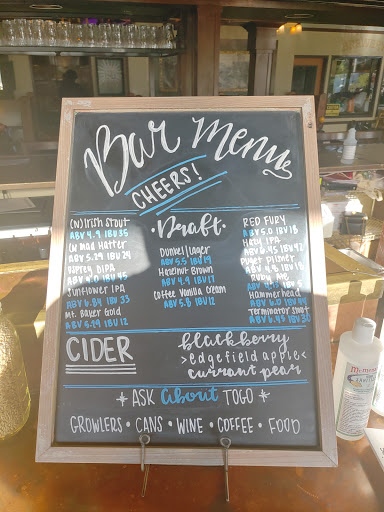 Bar Menu
CHEERS!
Draft
(N) IRISH STOUT
ABV 4.9 IBU 35
(N) MAD HATTER
ABV 5.29 IBU 24
DIPA
IBU 45
SUNFLOWER IPA
ABV 6.84 IBU 33
Mt. BAKER GOLD
ABV 5.29 IBU 12
Dunkel lager
ABV 5.5 IBU 29
Hazelnut Brown
ABV 4.9 IBU 17
COFFEE VANILLA CREAM
ABV 5.8 IBU 12
RED FURY
ABV 5.0 IBU 18
HAZY IPA
ABV 6.45 IBU 42
PUGET PILSNER
ABV 4.8 IBU 18
RUBY ALE
HAMMERHEAD
ABV 6.0 IBU 44
TERMINATOR STOUT
ABV 6.45 IBU 30
CIDER
blackberry
>edgefield apple<
currant pear
ASK About TOGO
GROWLERS • CANS • WINE • COFFEE • FOOD